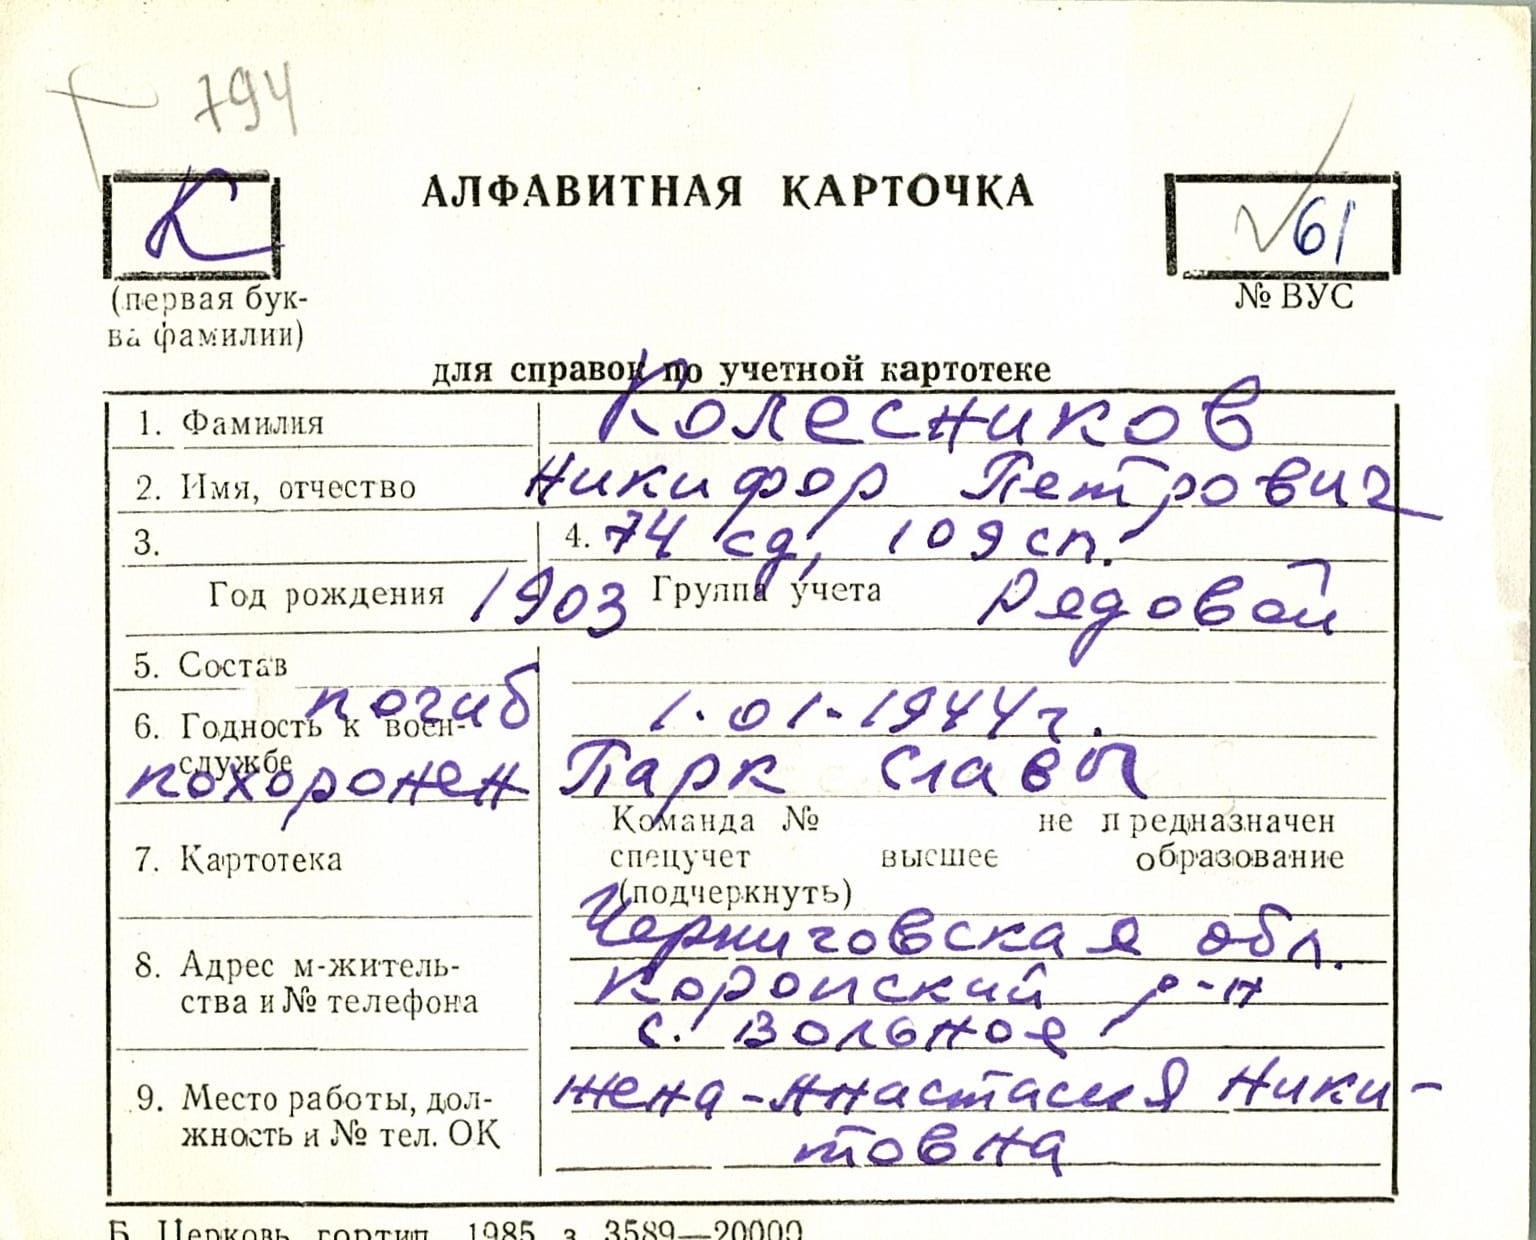 794
К
АЛФАВИТНАЯ КАРТОЧКА
61
(первая бук-
ва фамилии)
№ ВУС
для справок по учетной картотеке
1. Фамилия Колесников
2. Имя, отчество Никифор Петрович
3. 4. 74 сд, 109 сп.
Год рождения 1903 Группа учета Рядовой
5. Состав
погиб 1.01.1944г.
6. Годность к воен-
службе
похоронен Парк Славы
Команда № не предназначен
7. Картотека спецучет высшее образование
(подчеркнуть)
Черниговская обл.
8. Адрес м-житель- Коропский р-н
ства и № телефона
с. Вольное
9. Место работы, дол- жена - Анастасия Ники-
жность и № тел. ОК товна
Б. Церковь, гортип. 1985 з. 3589—20000